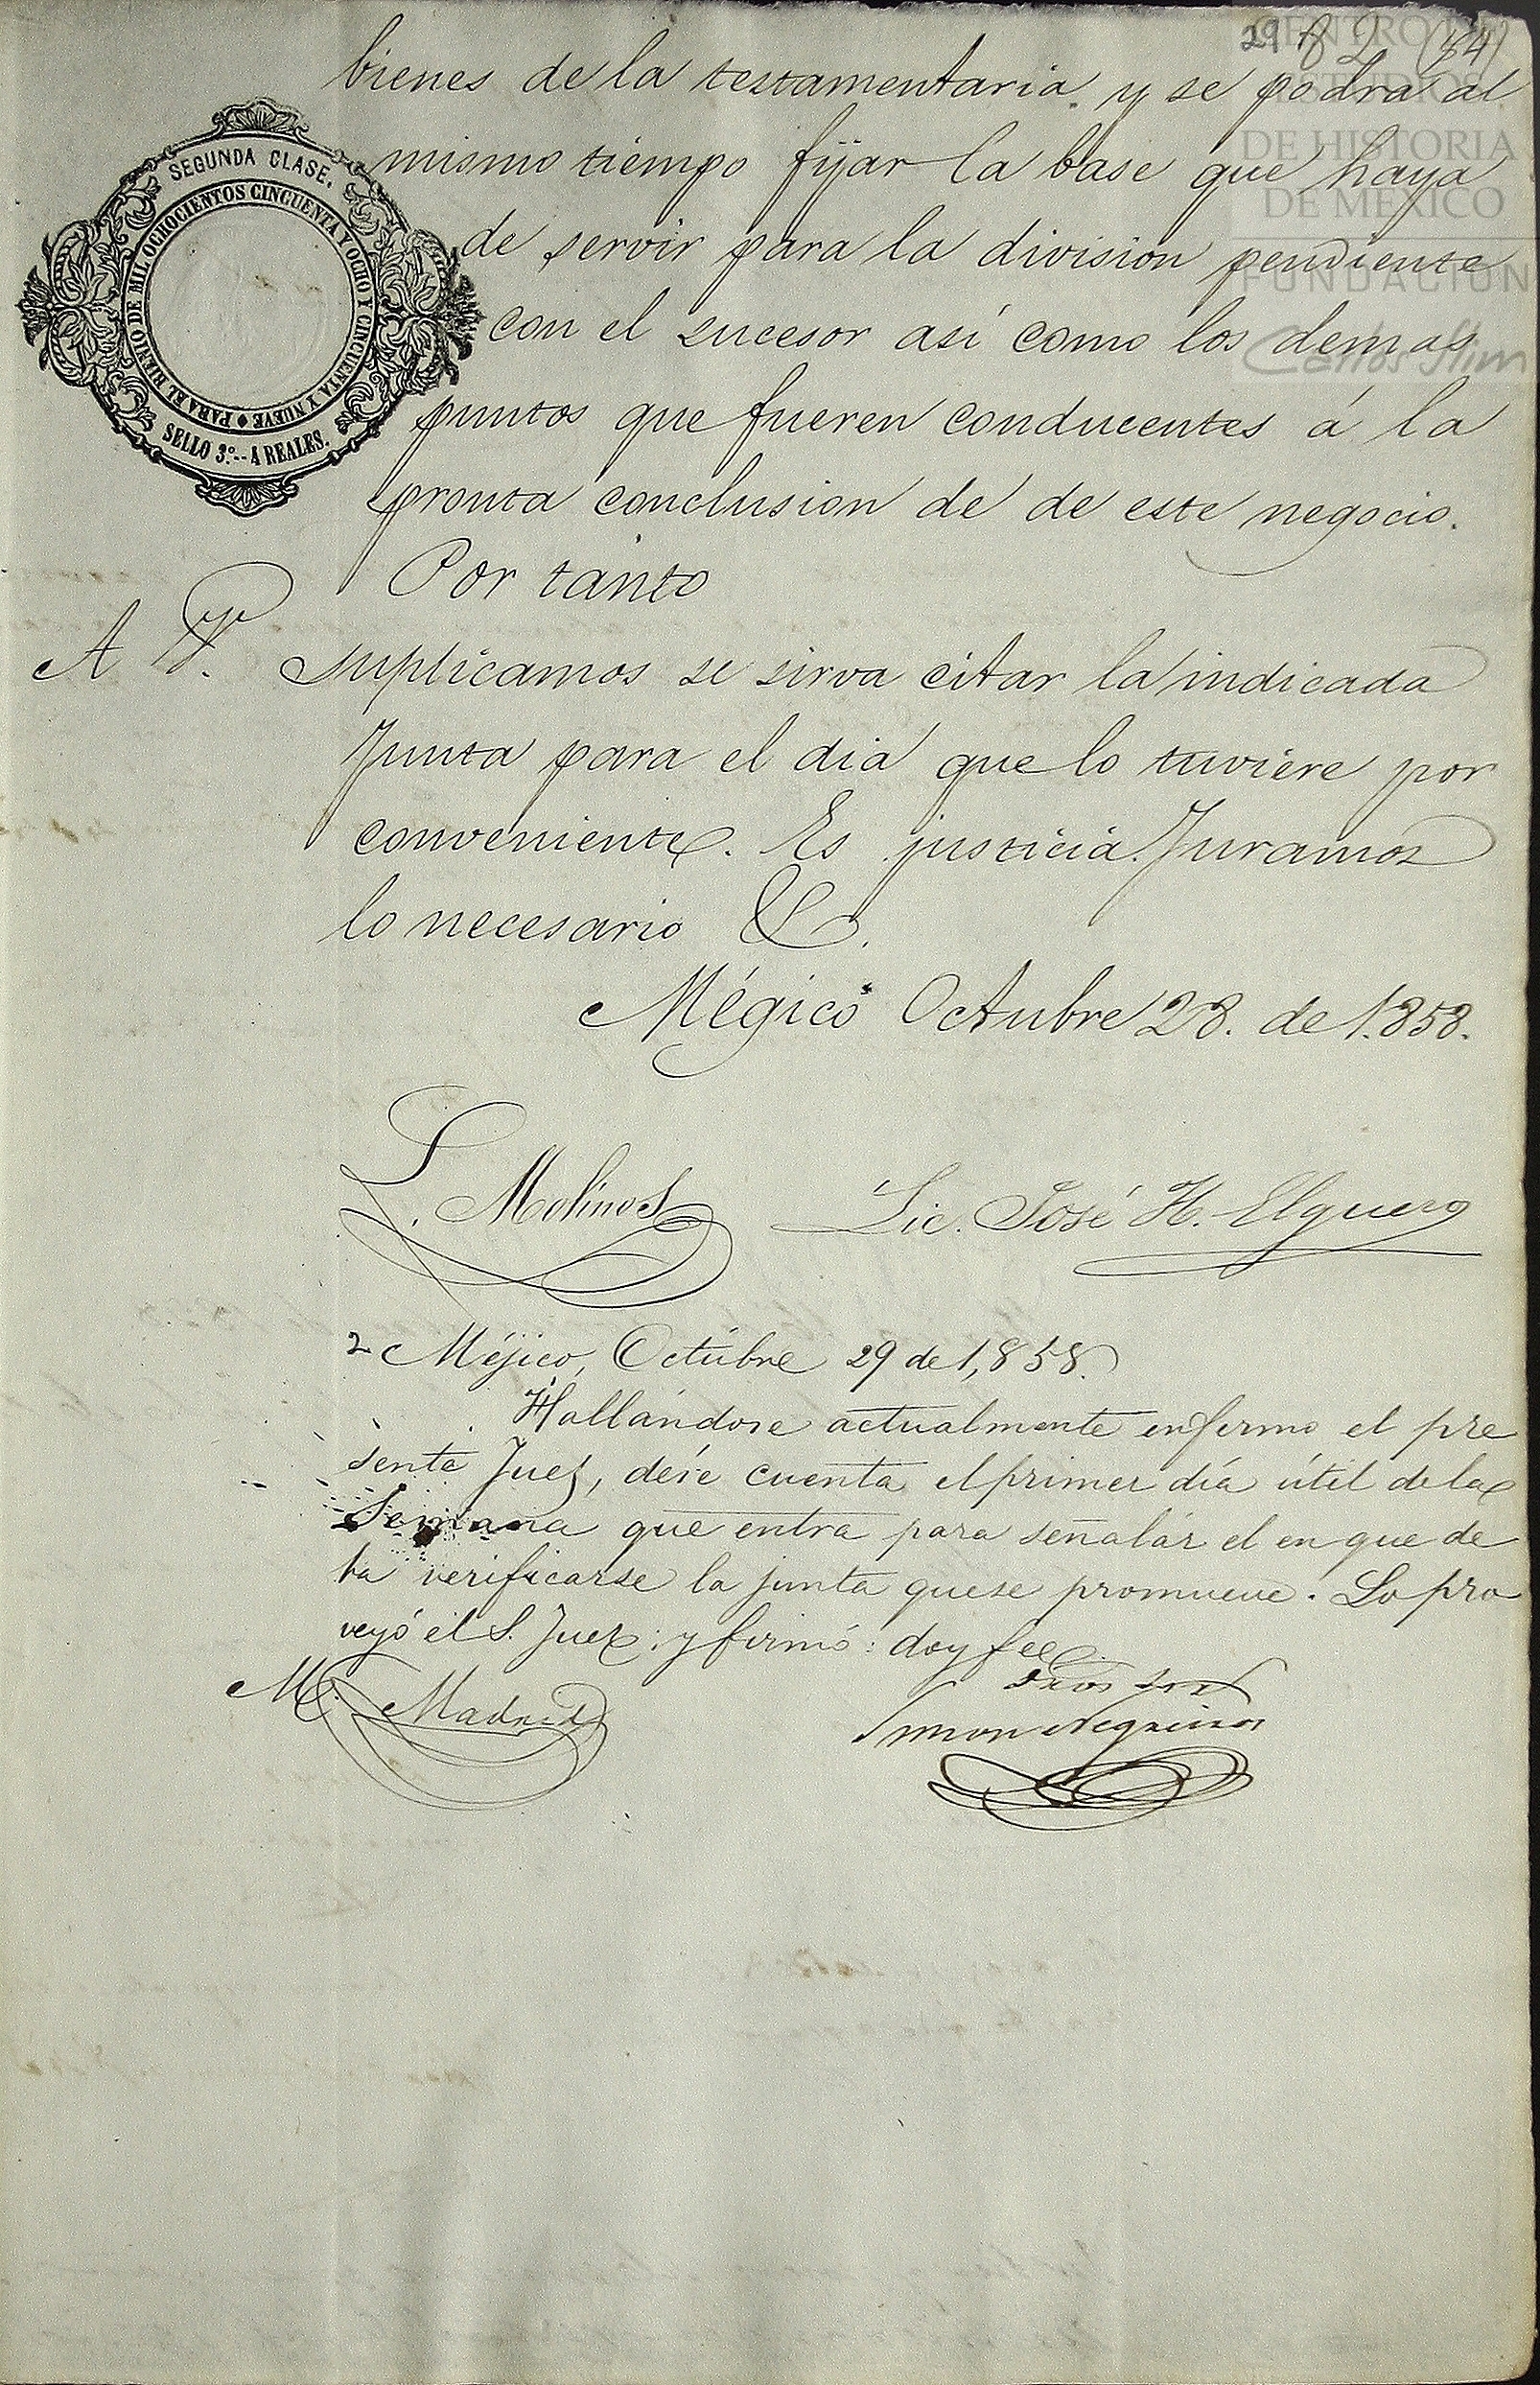 29 82 (84)
CENTRO DE
ESTUDIOS
DE HISTORIA
DE MÉXICO
FUNDACIÓN
Carlos Slim
SEGUNDA CLASE.
PARA EL BIENIO DE MIL OCHOCIENTOS CINCUENTA Y OCHO Y CINCUENTA Y NUEVE
SELLO 3.º--4 REALES.
bienes de la testamentaria y se podra al
mismo tiempo fijar la base que haya
de servir para la division pendiente
con el sucesor así como los demas
puntos que fueren conducentes á la
pronta conclusion de de este negocio.
Por tanto
A V. suplicamos se sirva citar la indicada
Junta para el dia que lo tuviere por
conveniente. Es justicia. Juramos
lo necesario &.
Mégico Octubre 28. de 1.858.
L. Molinos Lic. José H. Elguero
Méjico, Octubre 29 de 1,858.
Hallándose actualmente enfermo el pre
sente Juez, dése cuenta el primer día útil de la
Semana que entra para señalár el en que de
ba verificarse la junta que se promueve. Lo pro
veyó el S. Juez: y firmó: doy fee.
M. Madrid
Simon Negreiros